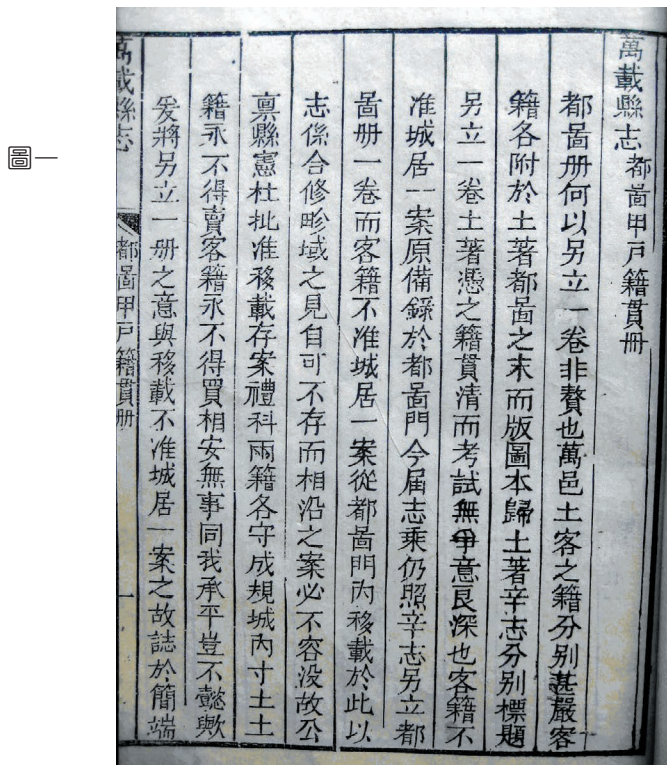 圖一
萬載縣志 都啚甲戸籍貫册
都啚册何以另立一卷非贅也萬邑土客之籍分別甚嚴客
籍各附於土著都啚之末而版圖本歸土著辛志分別標題
另立一卷土著憑之籍貫清而考試無爭意良深也客籍不
准城居一案原備錄於都啚門今届志乘仍照辛志另立都
啚册一卷而客籍不准城居一案從都啚門内移載於此以
志係合修畛域之見自可不存而相沿之案必不容没故公
禀縣憲杜批准移載存案禮科兩籍各守成規城内寸土土
籍永不得賣客籍永不得買相安無事同我承平豈不懿歟
爰將另立一册之意與移載不准城居一案之故誌於簡端
萬載縣志 都啚甲戸籍貫册 一